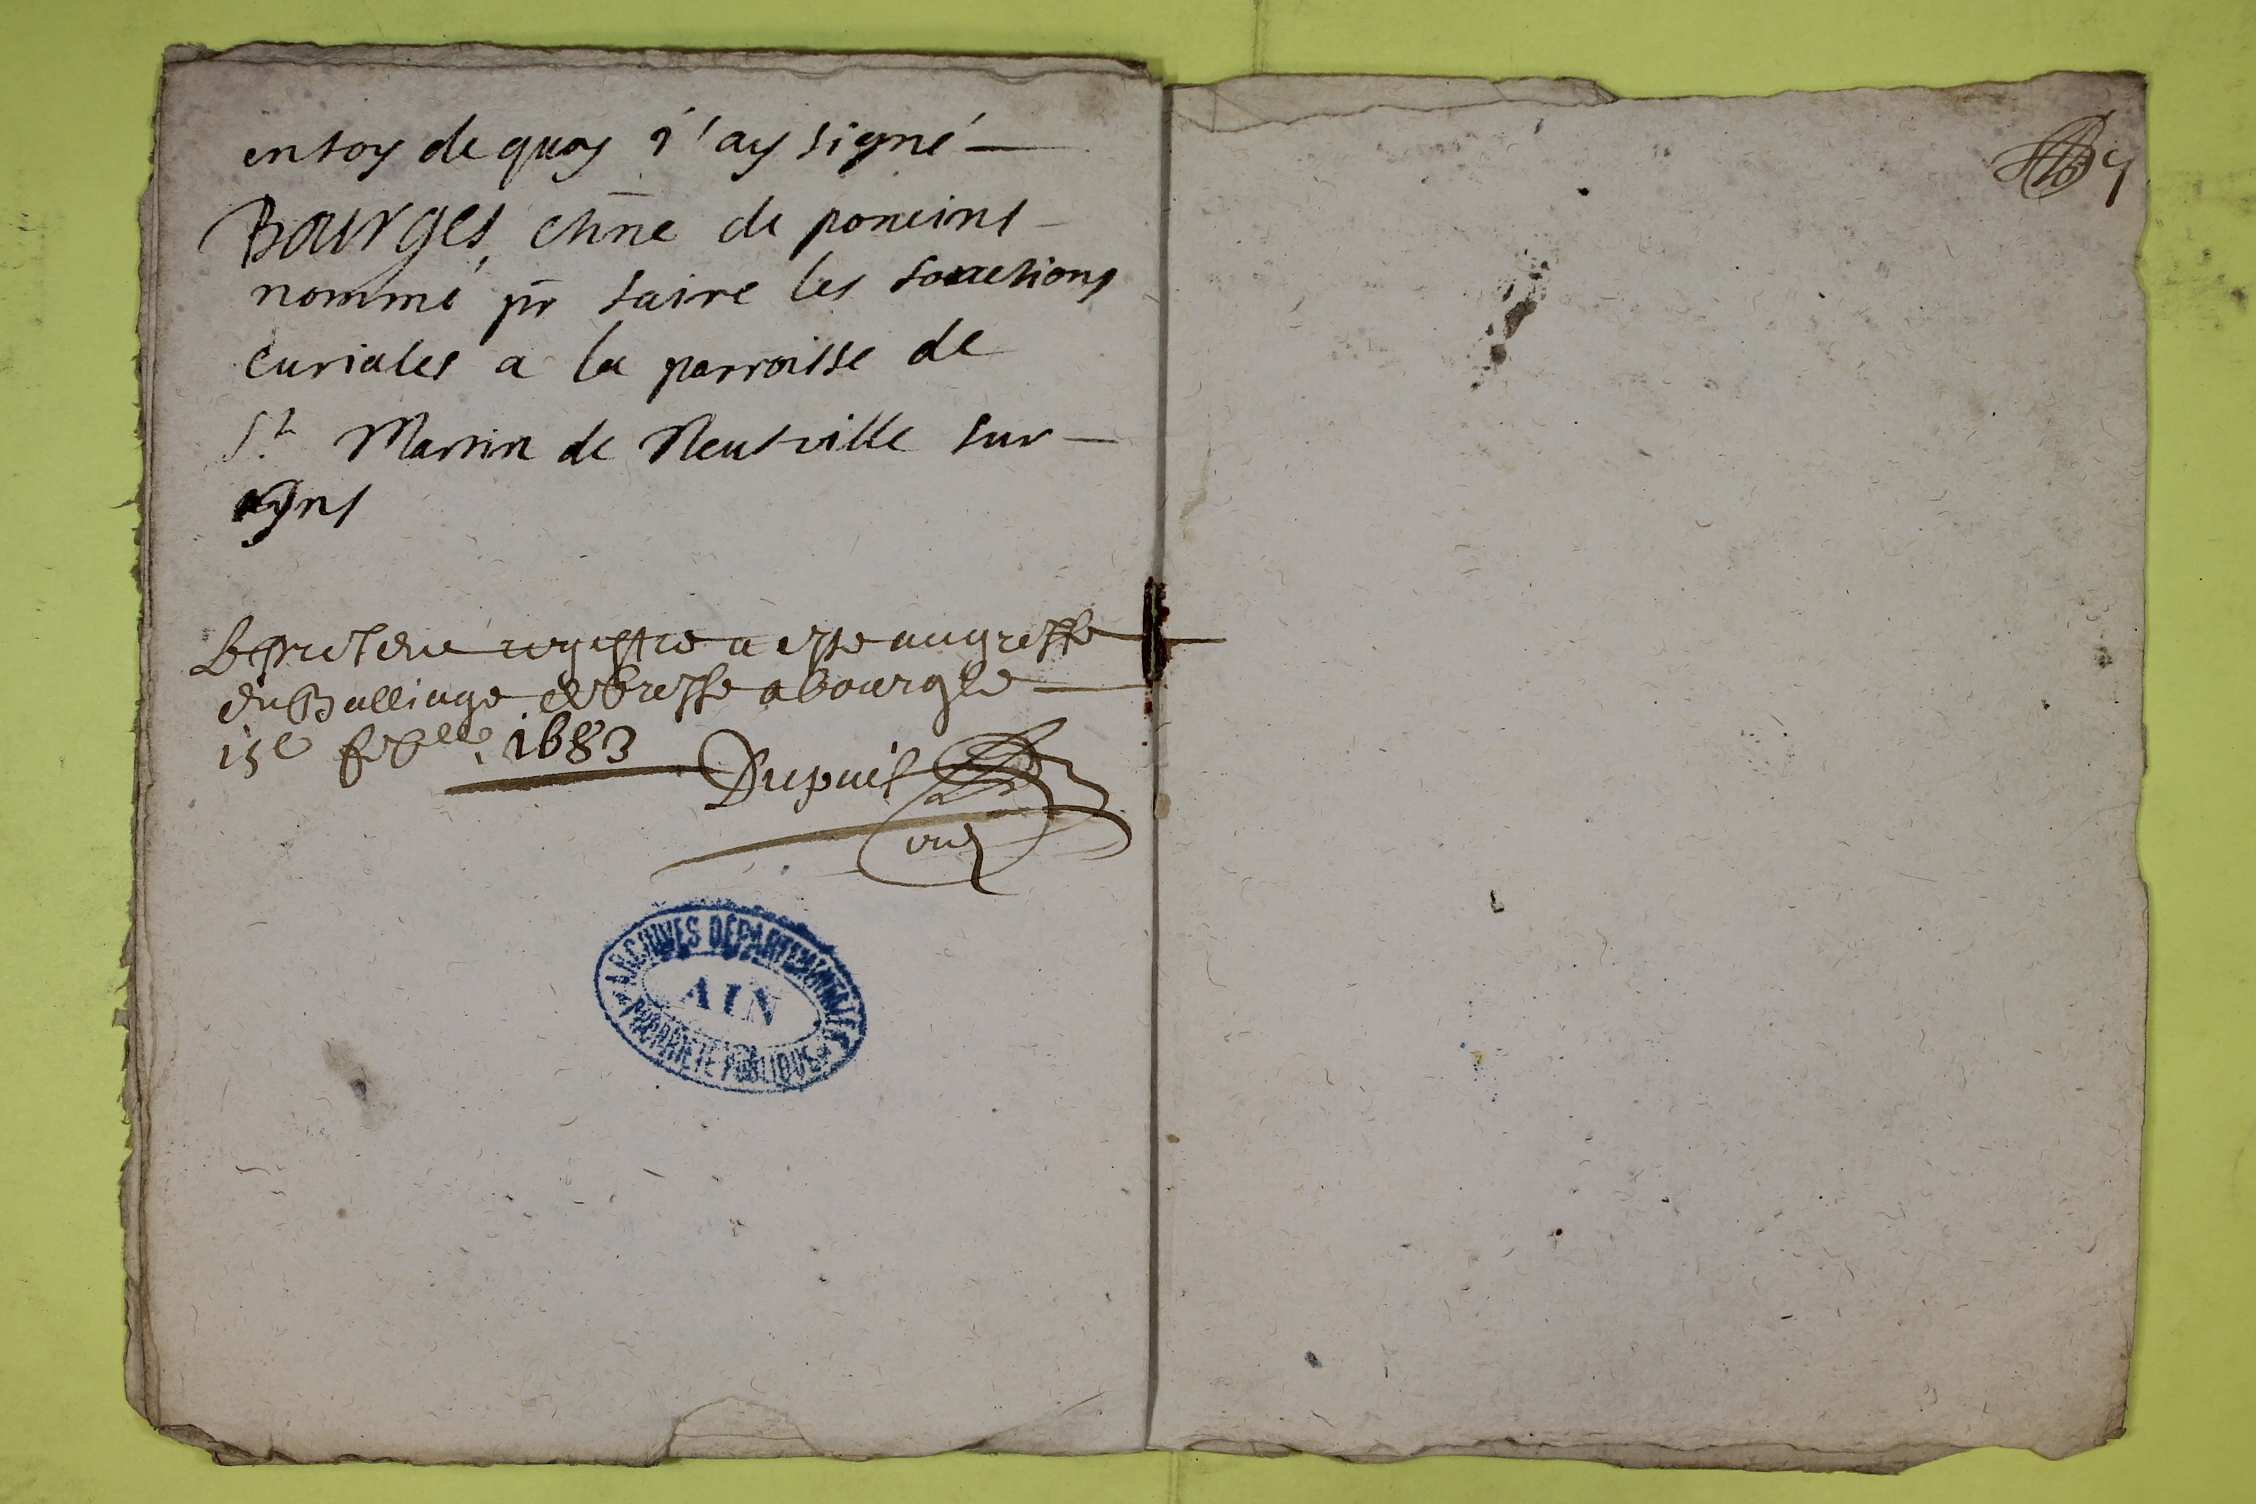 en foy de quoy j'ay signé
Bourges chñe de poncins
nommé pr faire les fonctions
curiales a la parroisse de
St Martin de Neufville sur
ayns
Le registre a esté au greffe
du Balliage de bresse a bourg le
15e 1683
Dupuis
ARCHIVES DÉPARTEMENTALES
AIN
PROPRIÉTÉ PUBLIQUE